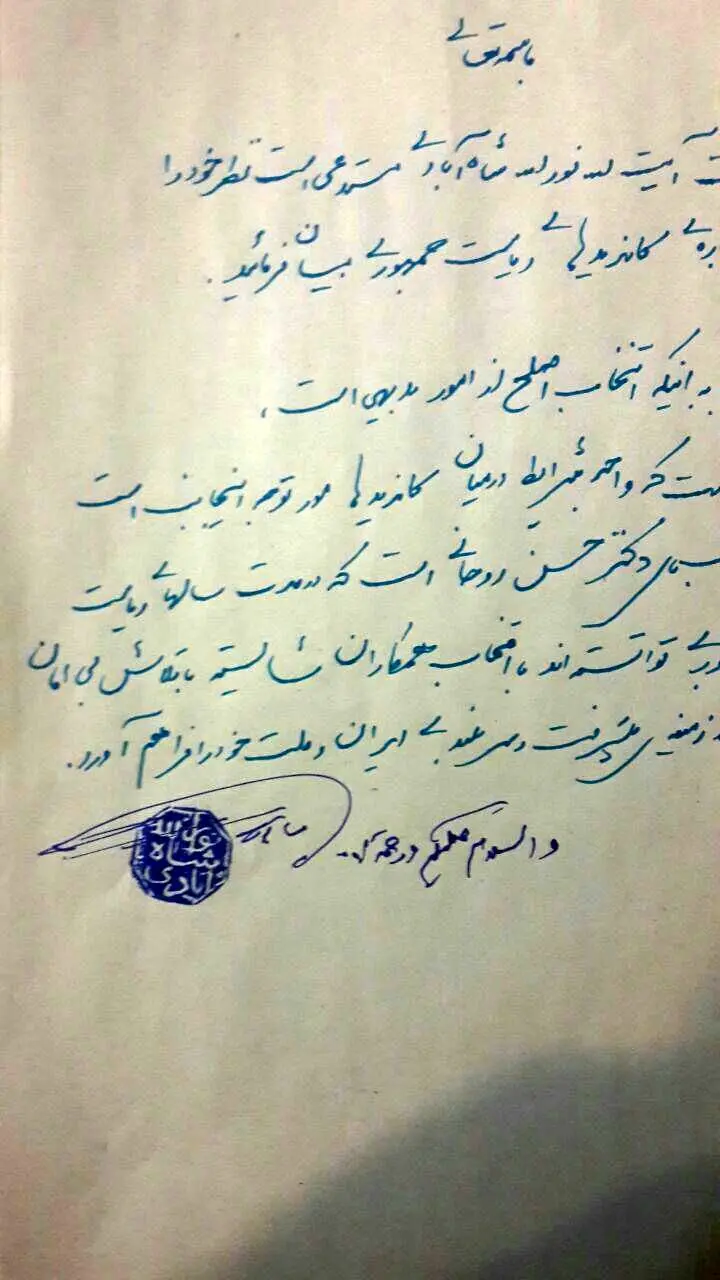 باسمه تعالی
آیت الله نورالله شاه آبادی مستدعی است نظر خود را
کاندیداهای ریاست جمهوری بیان فرمائید.
به اینکه انتخاب اصلح از امور بدیهی است،
که واجد شرایط درمیان کاندیدها مورد توجه اینجانب است
دکتر حسن روحانی است که درمدت سالهای ریاست
توانسته اند با انتخاب همکاران شایسته با تلاش بی امان
زمینه ی پیشرفت و سربلندی ایران و ملت خود را فراهم آورد.
والسلام علیکم ورحمة الله
نورالله شاه آبادی